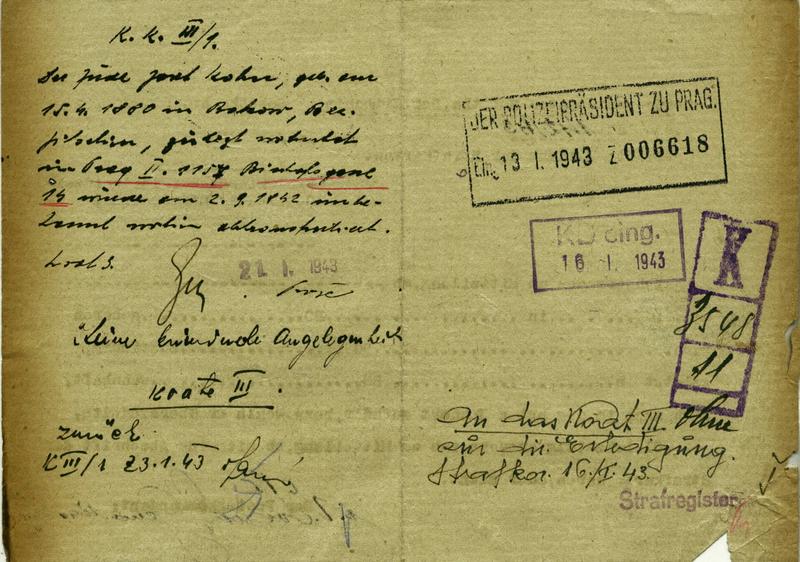 K. K. III/1.
Der Jude Josef Kohn, geb. am
15.4. 1880 in Bukow, Bez.
Pilsen, zuletzt wohnhaft
in Prag II. 1157 Bischofsgasse
14 wurde am 2. 9. 1942 unbe-
kannt wohin abtransportiert.
21. I. 1943
Keine kriminelle Angelegenheit
Koate III.
zurück
K III/1 23.1.43
DER POLIZEIPRÄSIDENT ZU PRAG.
Eing. 13 I. 1943 Z 006618
KD eing.
16 I. 1943
K
3548
11
An das Korat III ohne
zur Erledigung.
Strafkor. 16/I. 43.
Strafregister